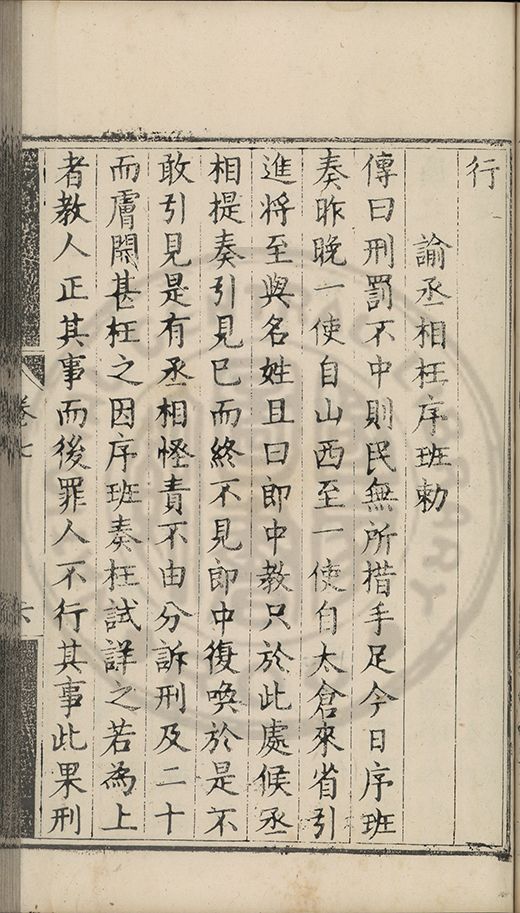 行
諭丞相枉序班勅
傳曰刑罰不中則民無所措手足今日序班
奏昨晚一使自山西至一使自太倉來省引
進將至與名姓且曰郎中教只於此處候丞
相提奏引見巳而終不見郎中復喚於是不
敢引見是有丞相怪責不由分訴刑及二十
而膚開甚枉之因序班奏枉試詳之若為上
者教人正其事而後罪人不行其事此果刑
卷七
六